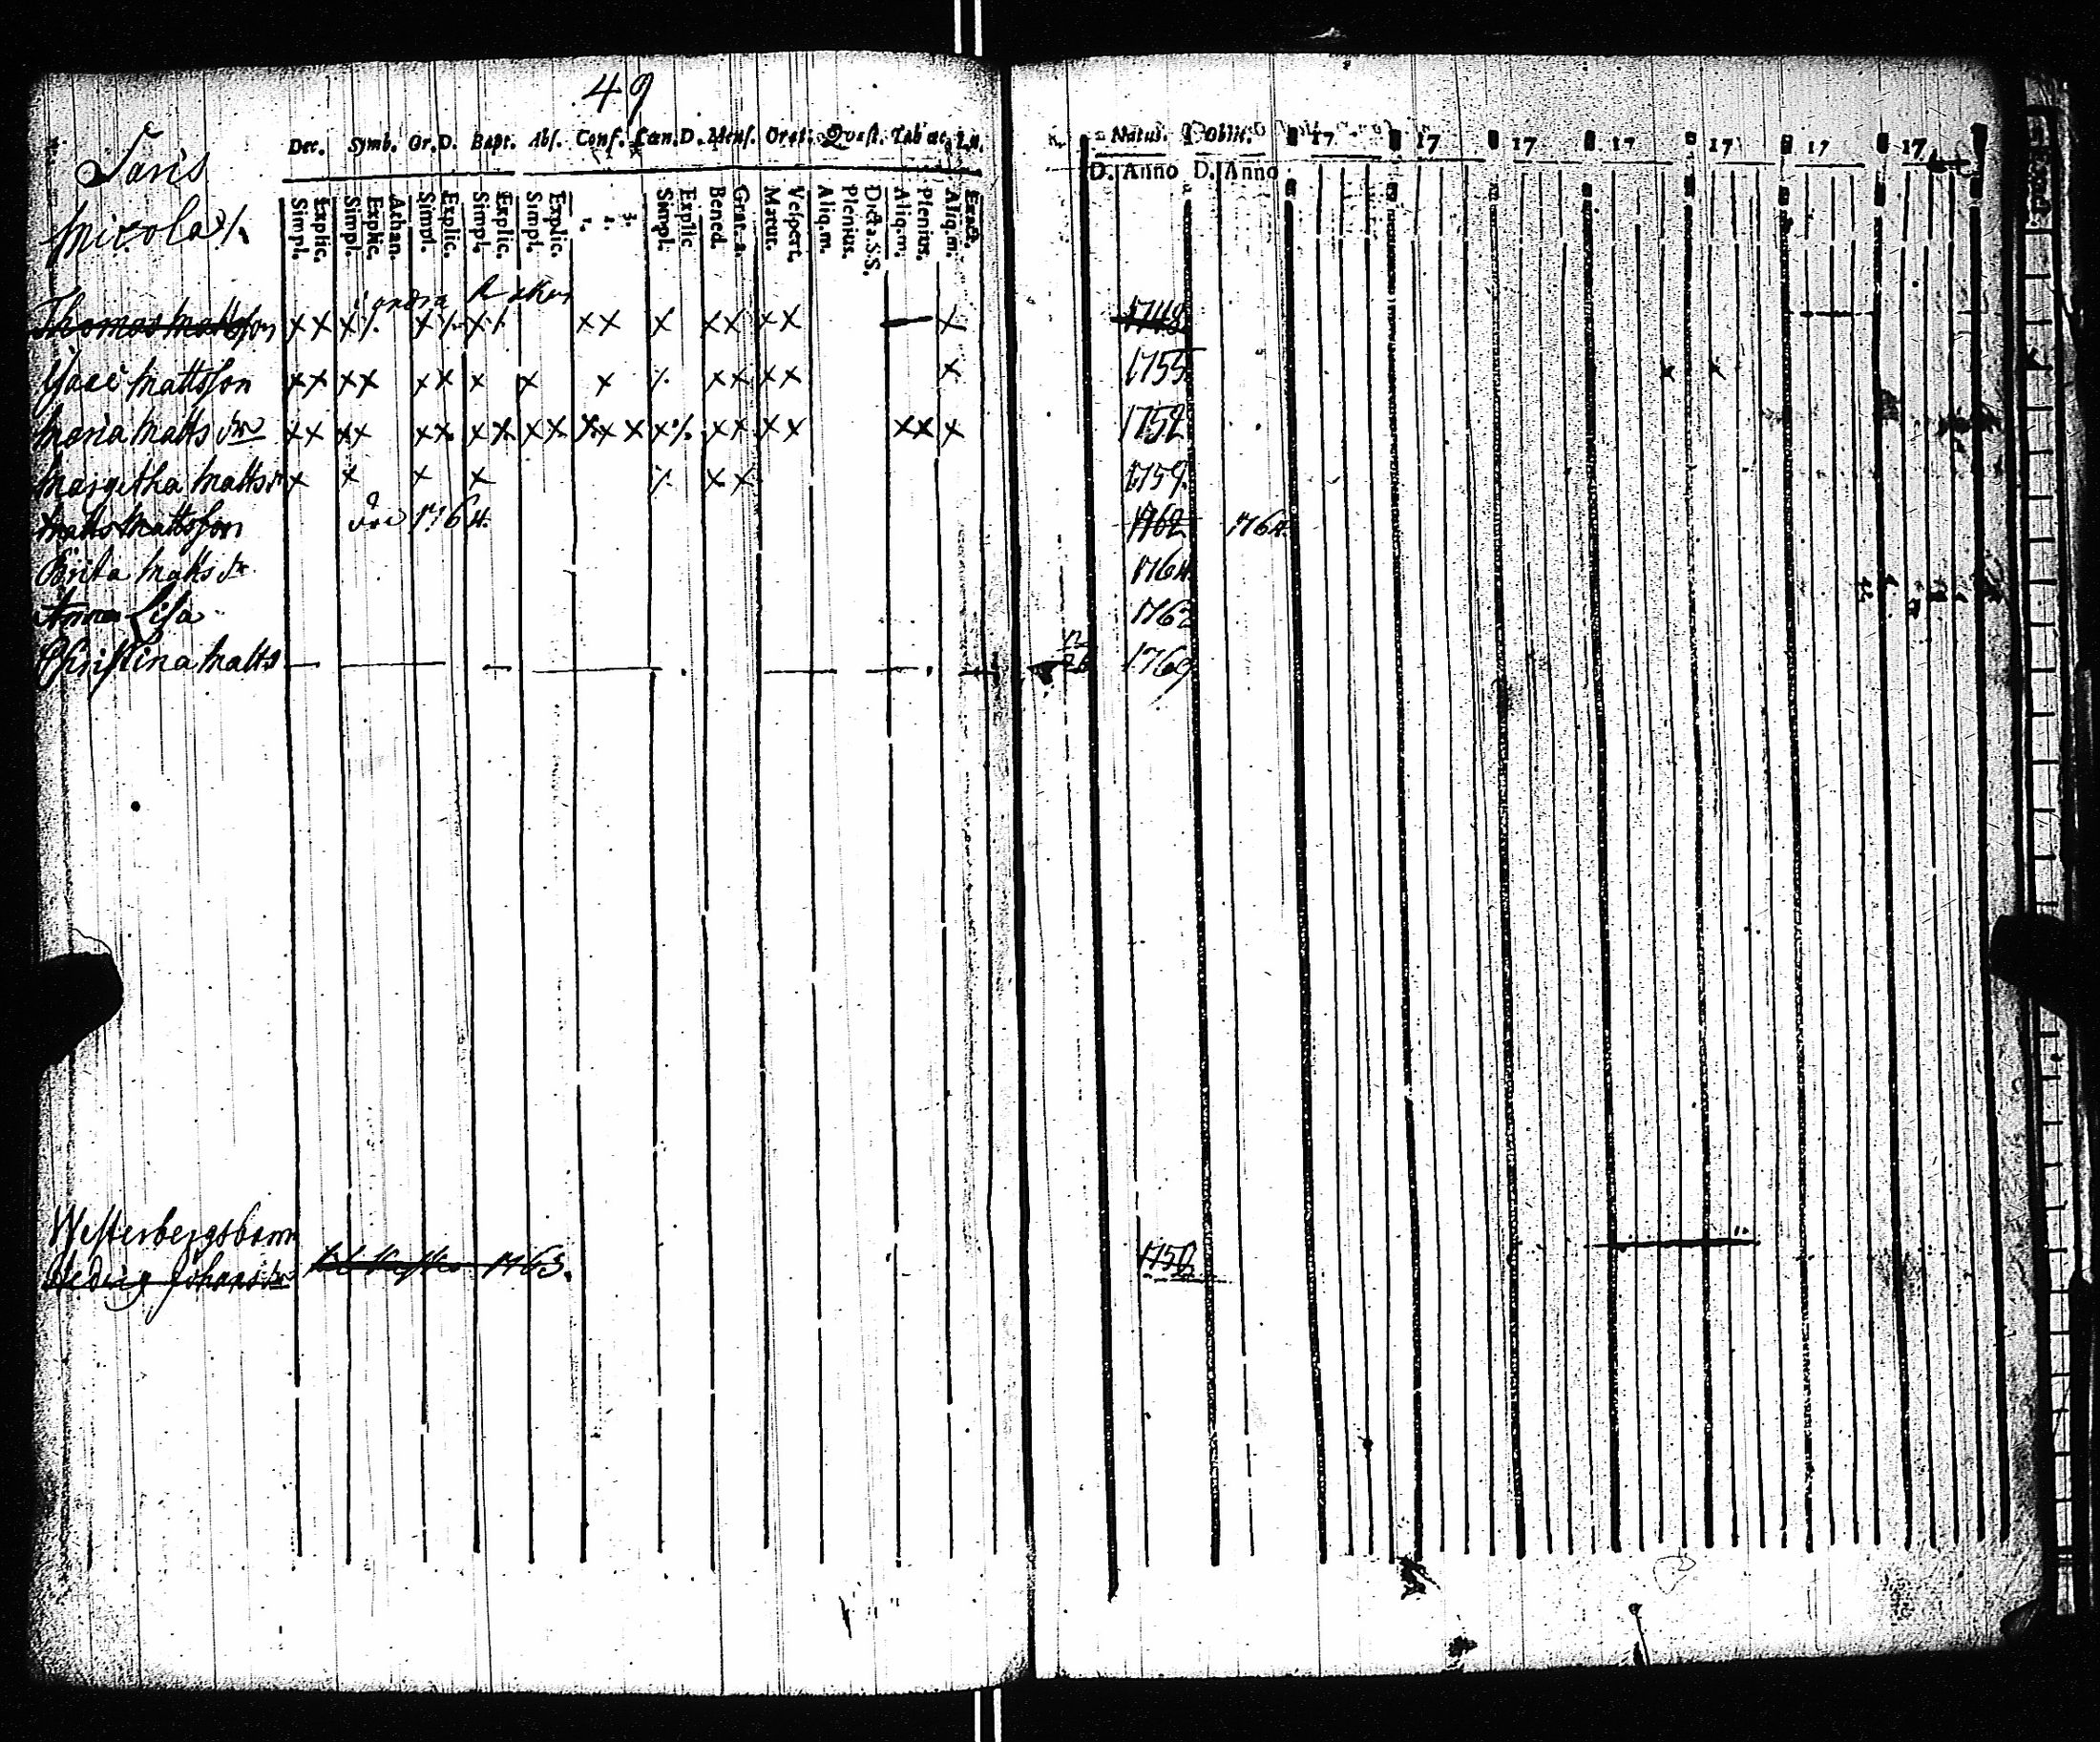 49
Dec. Symb. Or. D. Bapt. Abs. Conf. Cœn. D. Mens. Orat. Quæst. Tab. œc. Natus. Obiit. 17 17 17 17 17 17 17
D. Anno D. Anno
Simpl. Explic. Simpl. Explic. Athan. Simpl. Explic. Simpl. Explic. Simpl. Explic. 1. 2. 3. Simpl. Explic. Bened. Grat. a. Matut. Vespert. Aliq.m. Plenius. Dicta S.S. Aliq.m. Plenius. Aliq.m. Exact.
Saris
Micola
i andra
Thomas Mattsson x x x x x x x x x x x x x x 1748
Isaac Mattsson x x x x x x x x x x x x x x 1755
Maria Matts dr x x x x x x x x x x x x x x x x x x x x x 1752
Margetha Matts x x x x x x 1759
Matts Mattsson död 1764. 1762 1764.
Brita Matts dr 1764
Anna Lisa 1762
Christina Matts 1769
Westerbergs barn
Hedvig Johans dr 1763. 1750